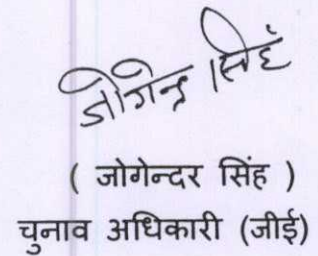 जोगेन्द्र सिंह
( जोगेन्दर सिंह )
चुनाव अधिकारी (जीई)